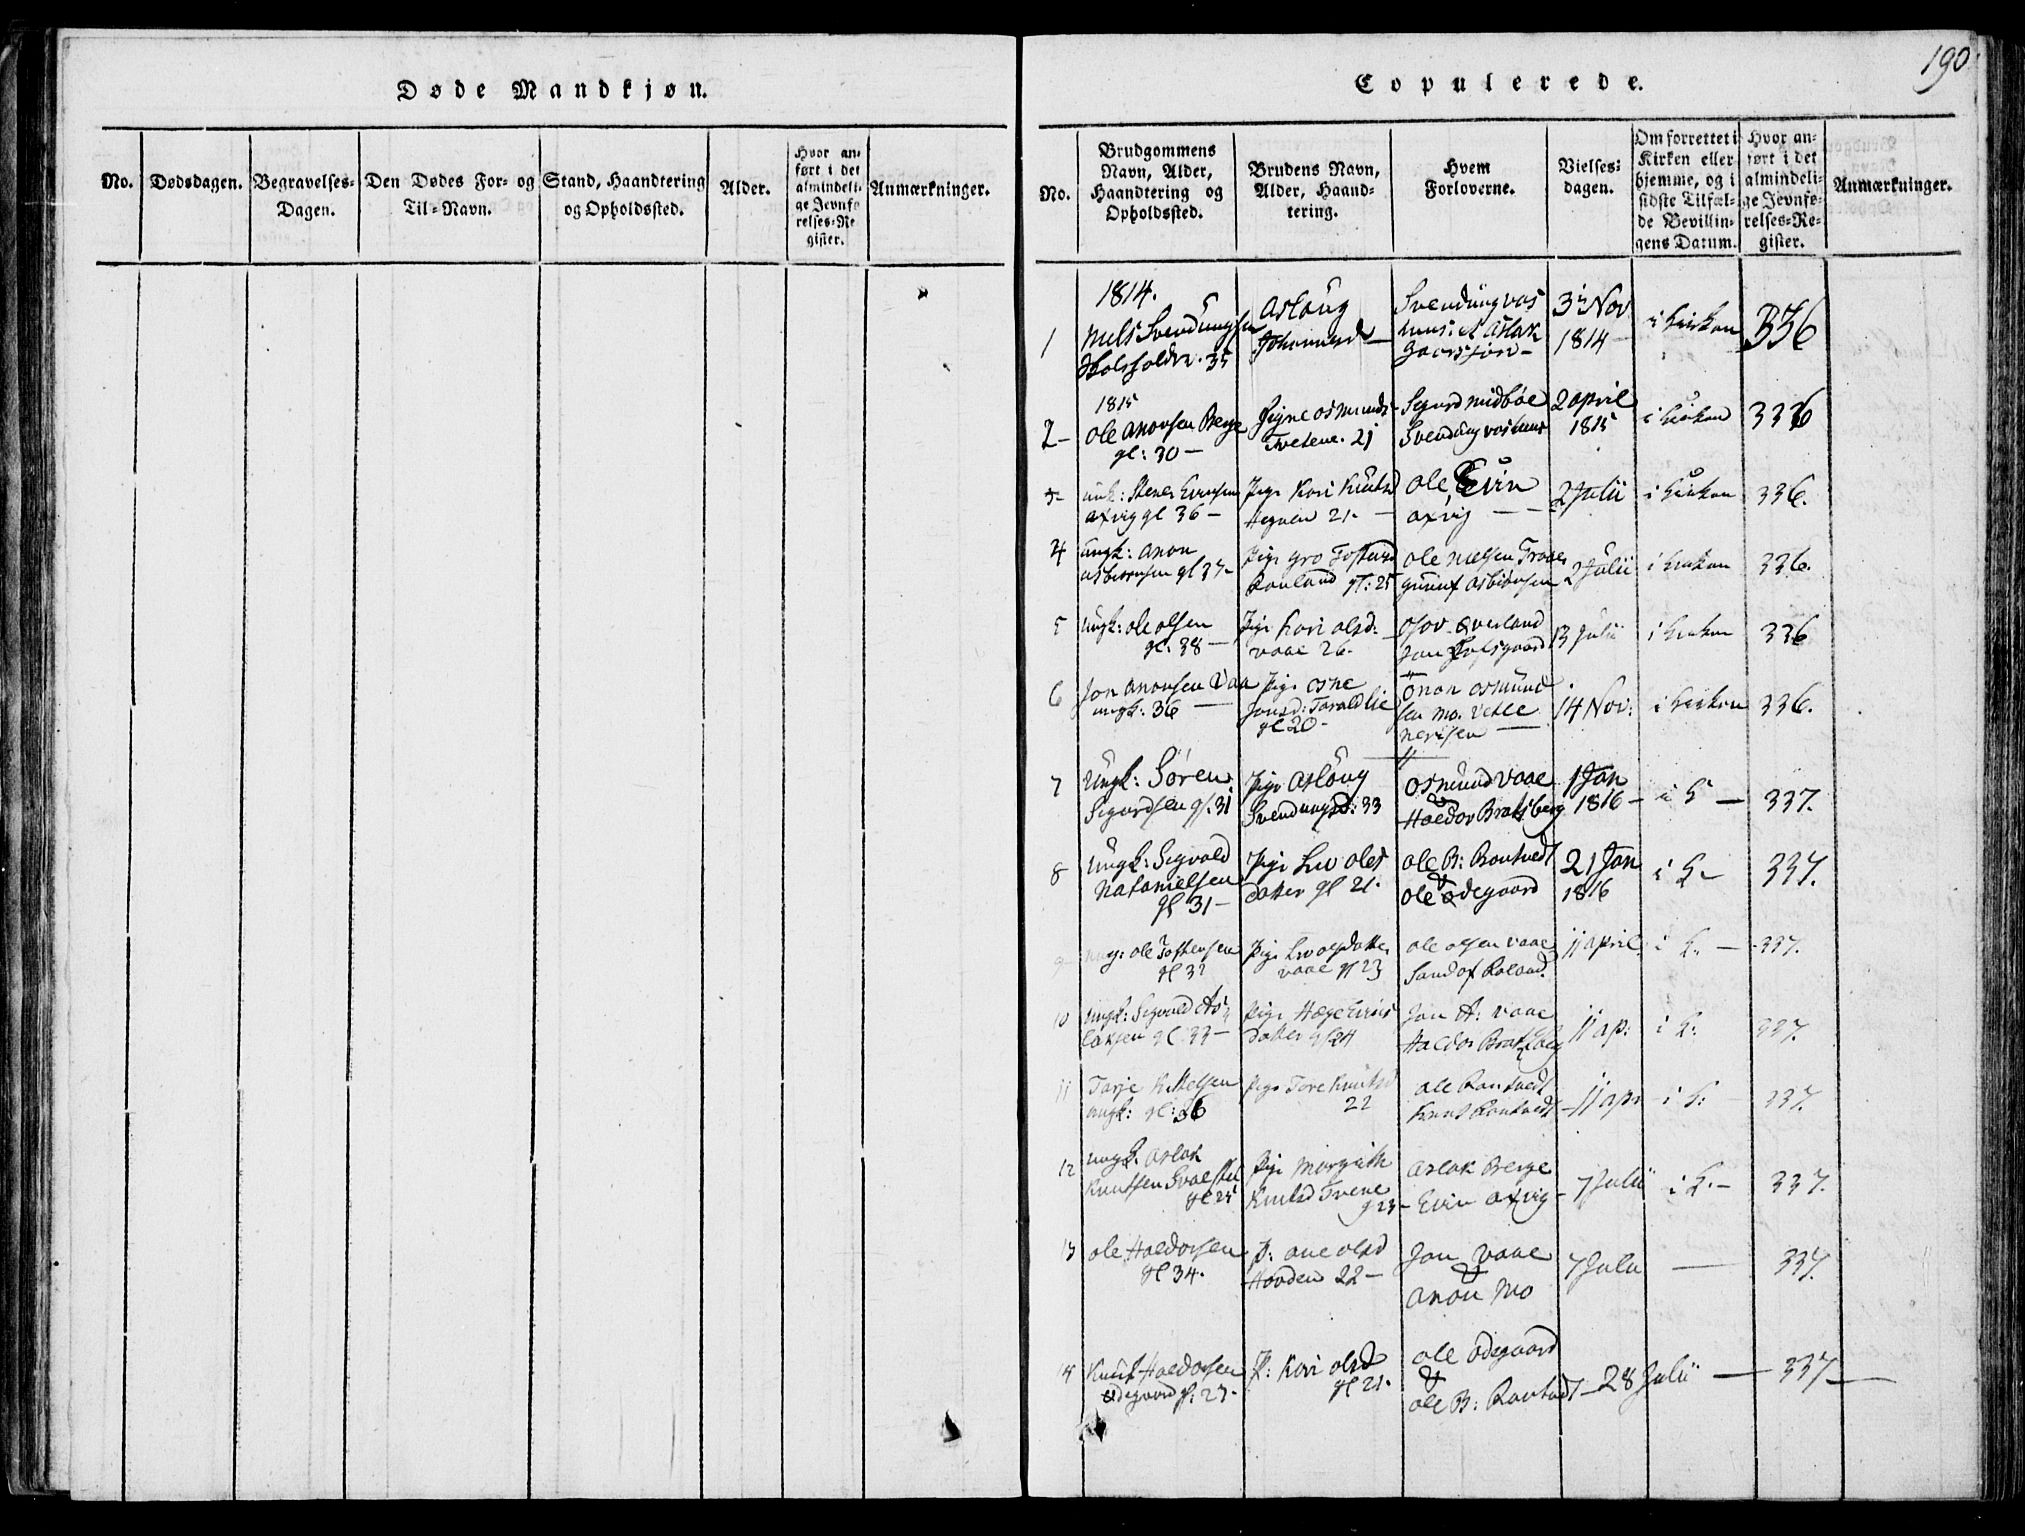 Døde Mandkjøn.
No.
Dødsdagen.
Begravelses-
Dagen.
Den Dødes For- og
Til-Navn.
Stand, Haandtering
og Opholdssted.
Alder.
Hvor an-
ført i det
almindeli-
ge Jevnfø
relses-Re
gister.
Anmærkninger.
190
Copulerede.
No.
Brudgommens
Navn, Alder,
Haandtering og
Opholdssted.
Brudens Navn,
Alder, Haand-
tering.
Hvem
Forloverne.
Vielses-
dagen.
Om forrettet i
Kirken eller
hjemme, og i
sidste Tilfæl-
de Bevillin-
gens Datum.
Hvor an-
ført i det
almindeli-
ge Jevnfø-
relses-Re-
gister.
Anmærkninger.
1814.
1 Nils Svendungsen 35
Aslaug
Svendung
Aslak
3 Nov
1814
i kirken 336
1815
2 Ole Anonsen Berge
gl: 30
Signe Osmunds
Tvetene. 21
Sigurd Midbøe
Svendung
2 April
1815
i kirken 336
3 ungk:
Axvig gl 36
Pige Kari Knutsd
21
Ole Eivin
Axvig
2 Julii i kirken 336.
4 ungk: Anon
Asbiørnsen gl 37
Pige Gro
Rauland gl: 25
Ole Nielsen
Asbiørnsen
2 Julii i kirken 336.
5 ungk: Ole Olsen
gl: 38
Pige Kari Olsd:
Vaae 26.
Øverland
Jon
13 Julii i kirken 336
6 Jon Anonsen Vaa
ungk: 36
Pige Osne
Jonsd: Taraldlie
gl 20
Onon Osmund
sen Mo. Vetle
14 Nov: i kirken 336.
7 Ungk: Søren
Sigurdsen gl. 31
Pige Aslaug
Svendungsd: 33
Osmund Vaae
&
Haldor Bratsberg
1 Jan
1816
i K 337.
8 Ungk: Sigvald
Natanielsen
gl 31
Pige Liv Oles
datter gl 21.
Ole B: Rontvedt
&
Ole Ødegaard
21 Jan
1816
i K 337.
9 ung: Ole
gl 32
Pige Liv Olsdatter
Vaae gl 23
Ole Olsen Vaae
11 April i K. 337.
10 Ungk: Sigvald As
laksen gl. 33
Pige Hæge Eivins
datter gl 24
Jon A: Vaae
Haldor Bratsberg
11 ap: i K: 337.
11 Tarje Kittelsen
ungk: gl: 26
Pige Tore Knutsd
22
Ole Rontvedt
Knut Rontvedt
11 apr i K: 337.
12 ungk. Aslak
Knutsen
gl 25
Pige Margith
Knutsd
g 23
Aslak Berge
Eivin Axvig
7 Julii i K. 337.
13 Ole Haldorsen
gl 34.
P: Ane Olsd
Hovden 22
Jon Vaae
&
Anon Mo
7 Julii 337.
14 Knut Haldorsen
Ødegaard gl. 27.
P: Kari Olsd
gl 21.
Ole Ødegaard
&
Ole B: Rontvedt
28 Julii 337